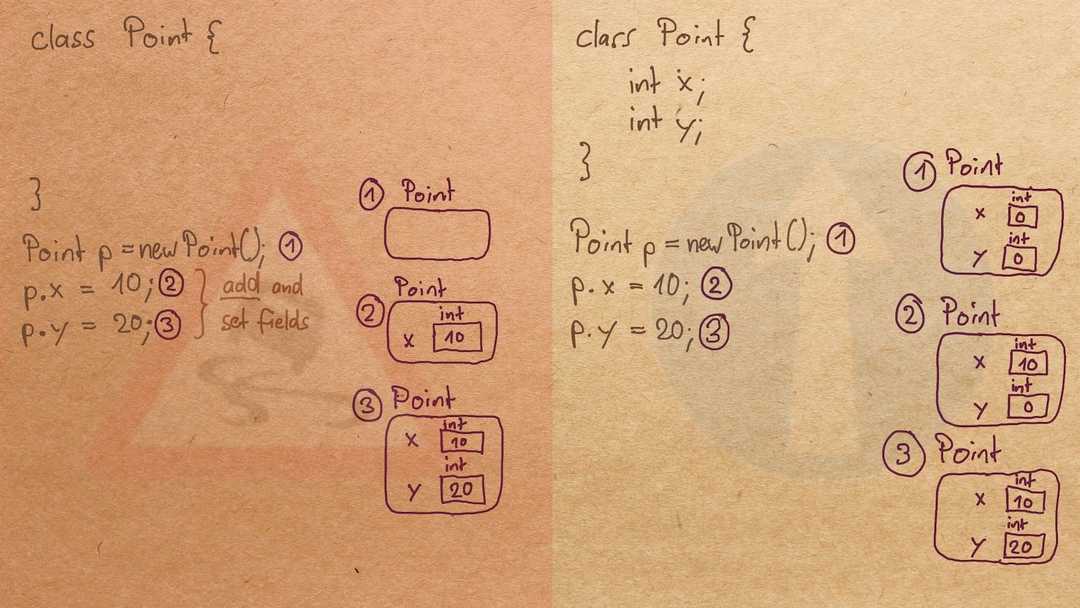 class Point {
}
Point p = new Point(); ①
p.x = 10; ②
p.y = 20; ③
add and
set fields
① Point
② Point
int
x 10
③ Point
int
x 10
int
y 20
class Point {
int x;
int y;
}
Point p = new Point(); ①
p.x = 10; ②
p.y = 20; ③
① Point
int
x 0
int
y 0
② Point
int
x 10
int
y 0
③ Point
int
x 10
int
y 20